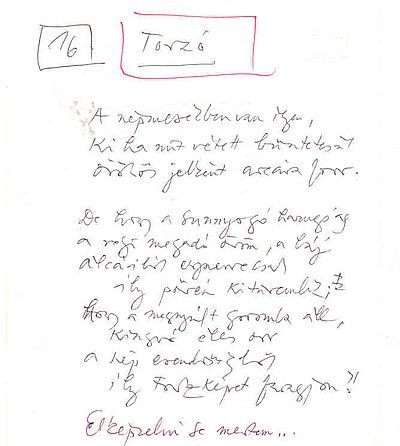 16
Torzó
A népmesékben van ilyen,
Ki ha mit vétett büntetését
örökös jelként arcára forr.
De hogy a sunnyogó hazugság
a régi megadó öröm, a báj
álcáiból egyszerre csak
így pőrén kitáruljék;
Hogy a megnyúlt goromba áll,
Kingró éles orr
a nép
így Torzképet faragjon?!
Elképzelni se mertem...